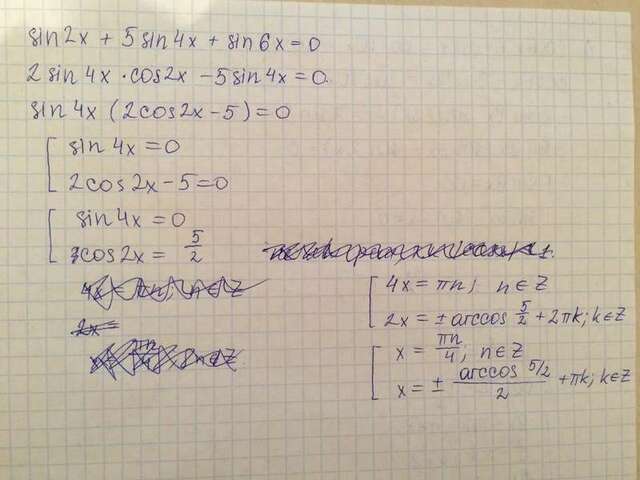 sin2x + 5sin4x + sin6x = 0
2sin4x · cos2x - 5sin4x = 0.
sin4x (2cos2x - 5) = 0
sin4x = 0
2cos2x - 5 = 0
sin4x = 0
cos2x = 5/2
2x =
4x = πn; n∈Z
2x = ± arccos 5/2 + 2πk; k∈Z
x = πn/4; n∈Z
x = ± arccos 5/2 / 2 + πk; k∈Z